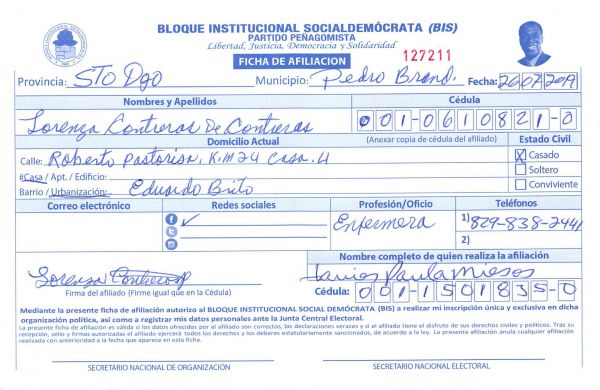 BLOQUE INSTITUCIONAL SOCIALDEMÓCRATA (BIS)
PARTIDO PEÑAGOMISTA
Libertad, Justicia, Democracia y Solidaridad
FICHA DE AFILIACION
127211
Provincia: STO Dgo Municipio: Pedro Brand. Fecha: 26 07 2019
Nombres y Apellidos Cédula
Lorenza Contreras De Contreras 001-0610821-0
Domicilio Actual (Anexar copia de cédula del afiliado) Estado Civil
Calle: Roberto Pastoriza, K.M 24 Casa. 4 X Casado
#Casa / Apt. / Edificio: Soltero
Barrio / Urbanización: Eduardo Brito Conviviente
Correo electrónico Redes sociales Profesión/Oficio Teléfonos
Enfermera 1) 829-838-2441
2)
Nombre completo de quien realiza la afiliación
Lorenza Contreras
Firma del afiliado (Firme igual que en la Cédula) Cédula: 001-1501835-0
Mediante la presente ficha de afiliación autorizo al BLOQUE INSTITUCIONAL SOCIAL DEMÓCRATA (BIS) a realizar mi inscripción única y exclusiva en dicha
organización política, así como a registrar mis datos personales ante la Junta Central Electoral.
La presente ficha de afiliación es válida si los datos ofrecidos por el afiliado son correctos, las declaraciones veraces y si el afiliado tiene el disfrute de sus derechos civiles y políticos. Tras su
recepción, sello y firmas autorizadas el afiliado ejercerá todos los derechos y los deberes estatutariamente sancionados, de acuerdo a la ley. La presente afiliación anula cualquier afiliación
realizada con anterioridad a la fecha que aparece en esta ficha.
SECRETARIO NACIONAL DE ORGANIZACIÓN SECRETARIO NACIONAL ELECTORAL